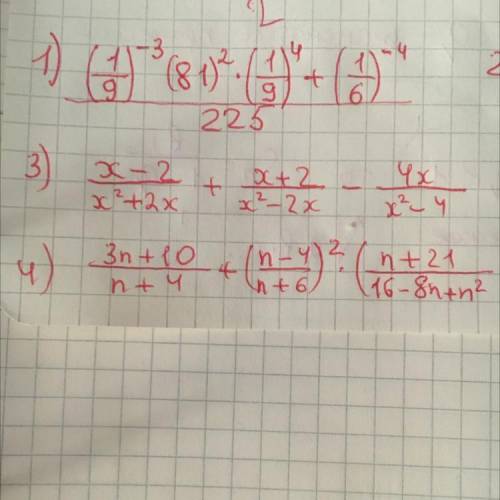 1) ((1/9)^-3 (81)^2 · (1/9)^4 + (1/6)^-4) / 225
3) (x-2)/(x^2+2x) + (x+2)/(x^2-2x) - 4x/(x^2-4)
4) (3n+10)/(n+4) + ((n-4)/(n+6))^2 · ((n+21)/(16-8n+n^2)